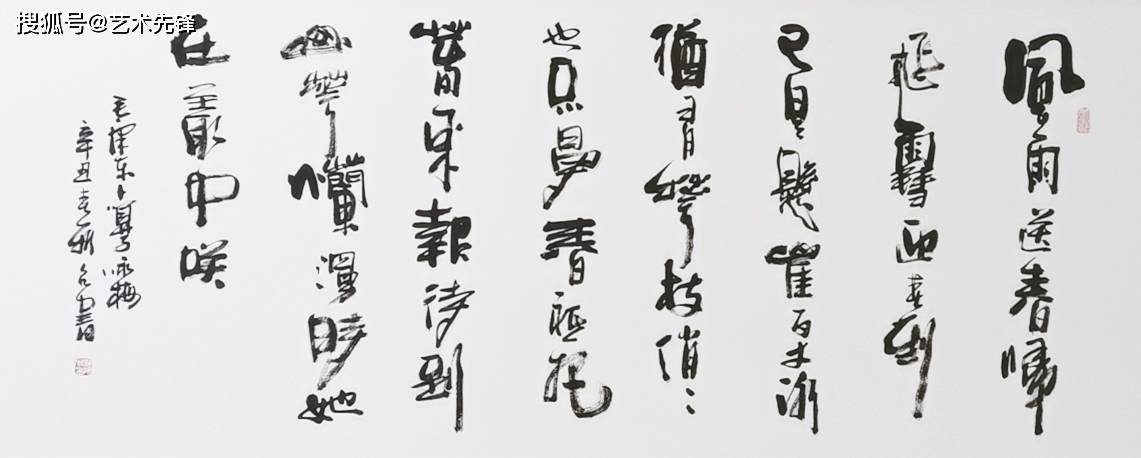 搜狐号@艺术先锋
風雨送春歸
飛雪迎春到
已是懸崖百丈冰
猶有花枝俏
也不爭春祗把
春來報待到
山花爛漫時她
在叢中咲
毛澤东卜算子咏梅
辛丑春